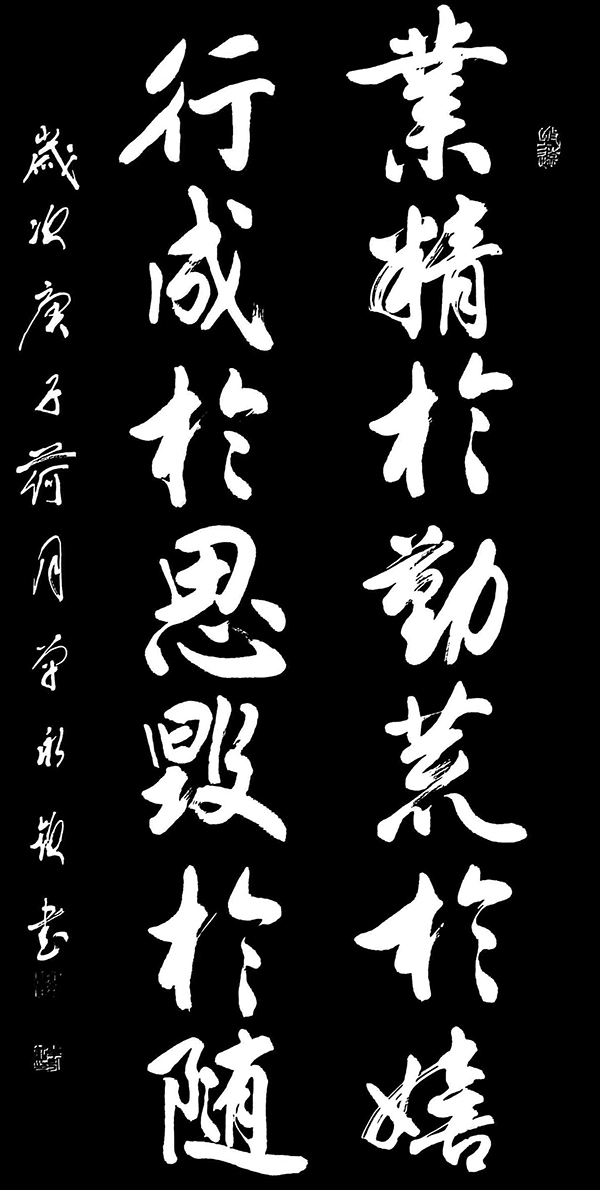 業精於勤荒於嬉
行成於思毀於随
歲次庚子荷月章永欽書